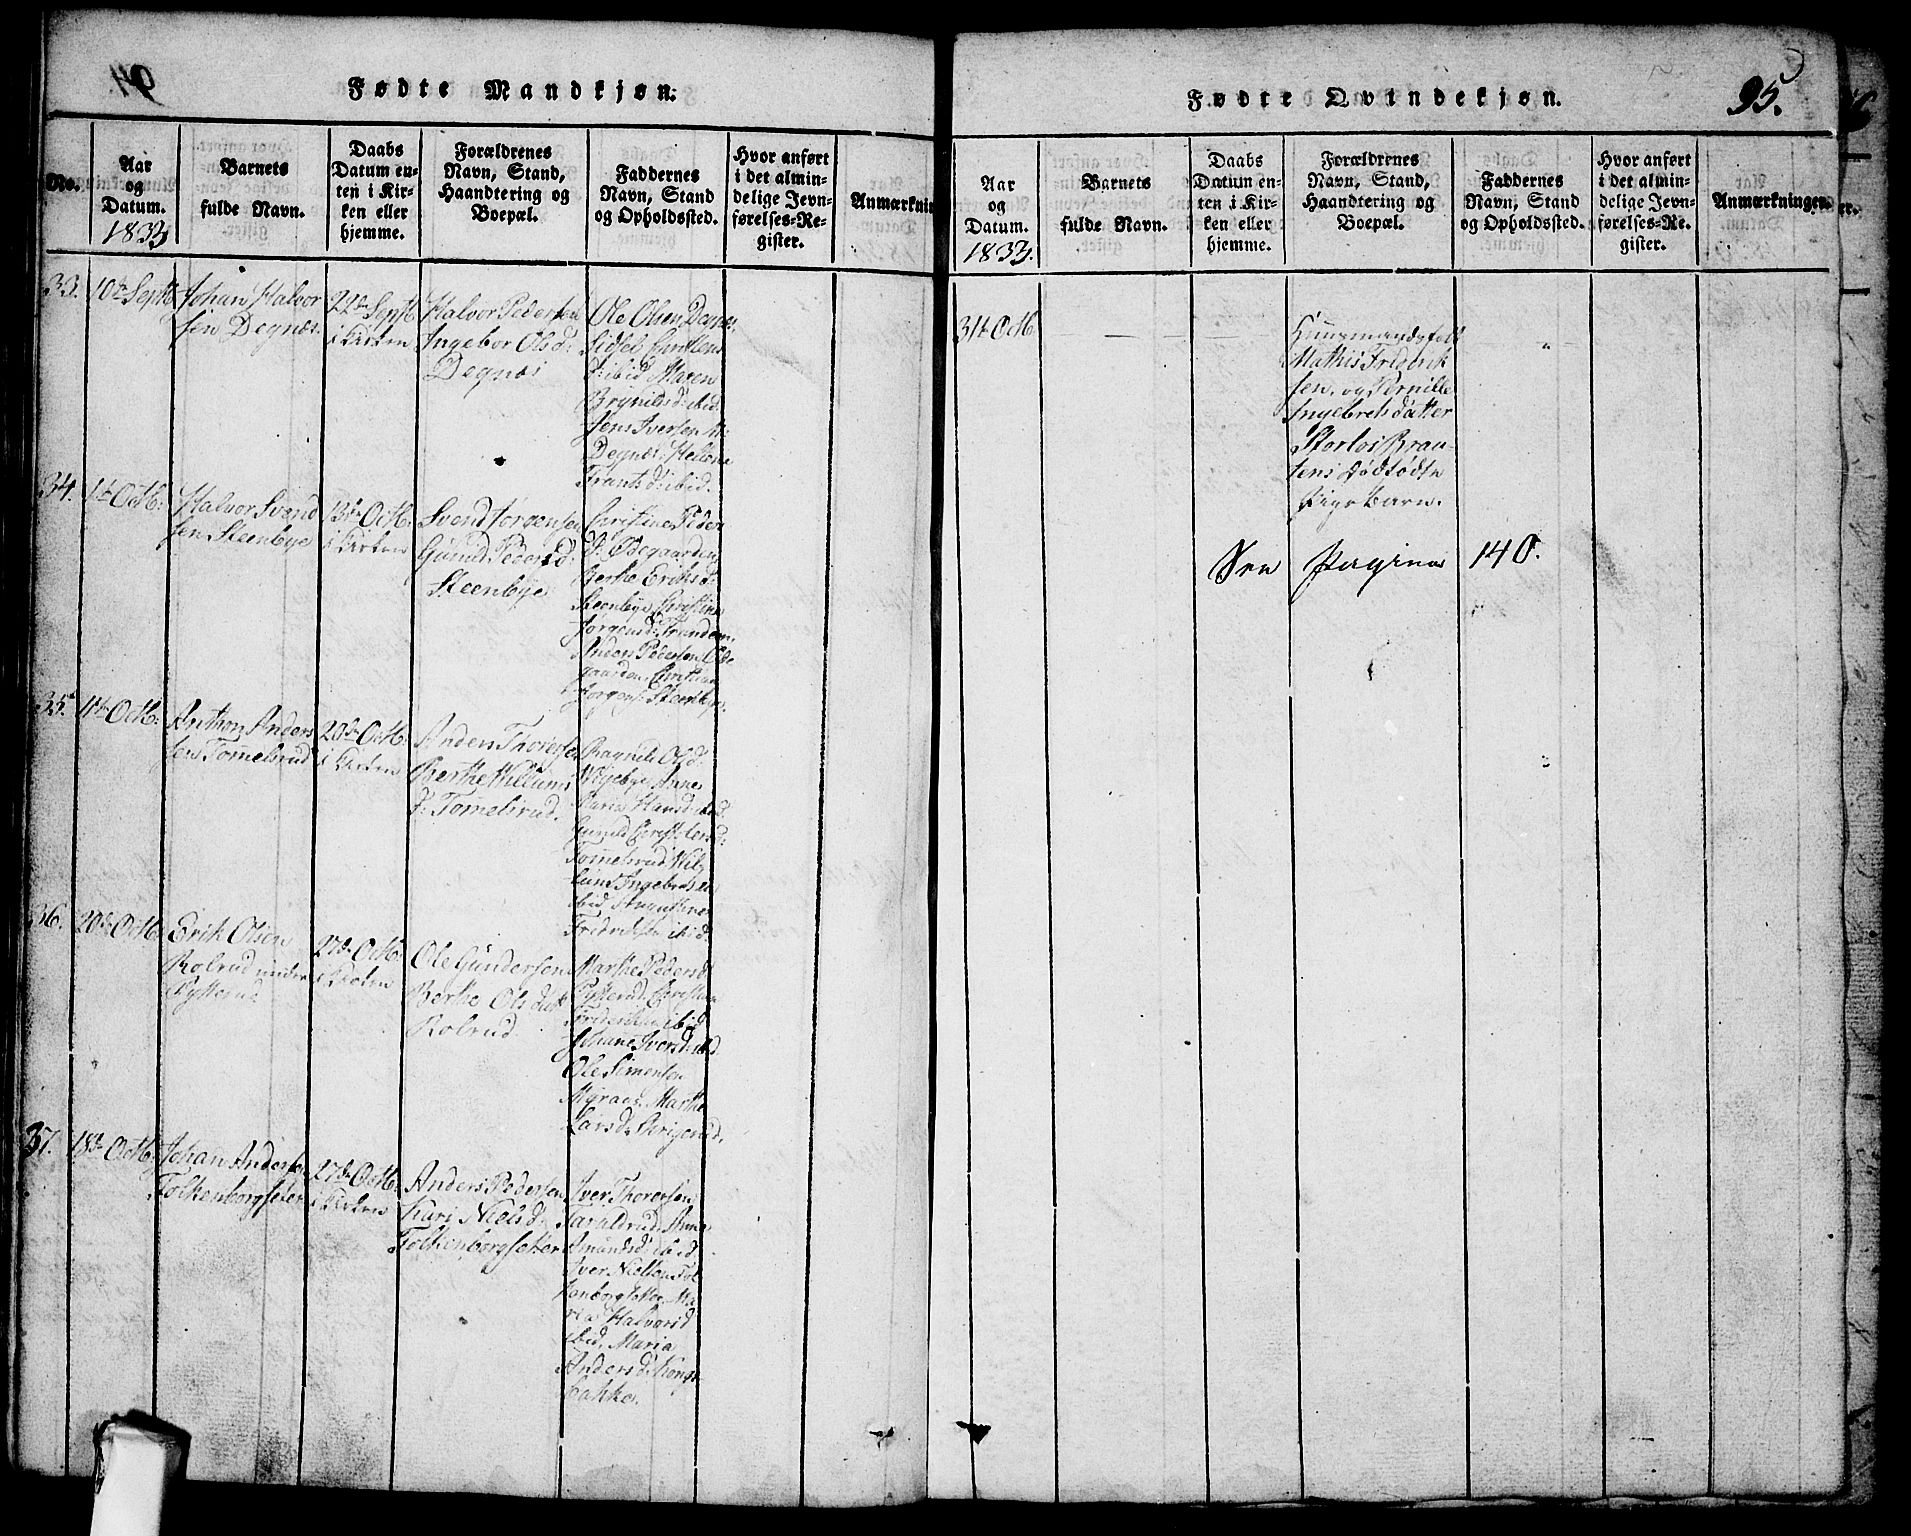 Fødte Mandkjøn.
No.
Aar
og
Datum.
1833
Barnets
fulde Navn.
Daabs
Datum en-
ten i Kir-
ken eller
hjemme.
Forældrenes
Navn, Stand,
Haandtering og
Boepæl.
Faddernes
Navn, Stand
og Opholdssted.
Hvor anført
i det almin-
delige Jevn-
førelses-Re-
gister.
Anmærknin
33.
10de Septb
Johan Halvor
sen Degnæs.
22de Septb
i Kirken
Halvor Pedersen
Ingebor Olsd:
Degnæs
Ole Olsen Degnæs
Sidsel
d: ibid Maren
Brynilds d: ibid
Jens Iversen
Degnæs, Helene
Frants d: ibid.
34.
1te Octb:
Halvor Svend
sen Steenbye
13de Octb.
i Kirken
Svend Jørgensen
Gunild Peders d:
Steenbye
Christine Peder
d: Ødegaarden,
Berthe Eriks d:
Steenbye, Christine
Jørgensd:
Anders Pedersen Øde
gaarden, Christian
Jørgens: Steenbye.
35.
4de Octb:
Anthon Anders
sen Tomelsrud
20de Octb:
i Kirken
Anders Thoresen
Berthe Willums
d: Tomelsrud.
Ragnild Ols d:
Anne
Maria Hans d: ibid.
Gunild Christofersd:
Tomelsrud, Wil
lum Ingebretsen
ibid
Fredriksen ibid.
36.
20de Octb:
Erik Olsen
Rolrud under
27de Octb:
i Kirken
Ole Gundersen
Berthe Olsdatt
Rolrud
Marthe Peders d
Christian
Frederiksen ibid
Johane Iversd: ibid
Ole Simensen
Myraas. Marthe
Lars d:
37.
18de Octb:
Johan Andersen
Folkenborgseter
27de Octb:
i Kirken
Anders Pedersen
Kari Niels d:
Folkenborgsetter
Iver Thoresen
Taraldrud, Anne
Amunds d: ibid
Iver Nielsen Fol
kenborgsetter, Ma
ria Halvorsd
ibid, Maria
Anders d: Kongs
bakke.
Fødte Qvindekjøn.
95.
Aar
og
Datum.
1833.
Barnets
fulde Navn.
Daabs
Datum en-
ten i Kir-
ken eller
hjemme.
Forældrenes
Navn, Stand,
Haandtering og
Boepæl.
Faddernes
Navn, Stand
og Opholdssted.
Hvor anført
i det almin-
delige Jevn-
førelses-Re-
gister.
Anmærkninger.
31te Octb
Huusmandsfolk
Mathis Frederik
sen, og Pernille
Ingebrets datter
Brau-
tens Dødfødte
Pige Barn.
See Pagina 140.